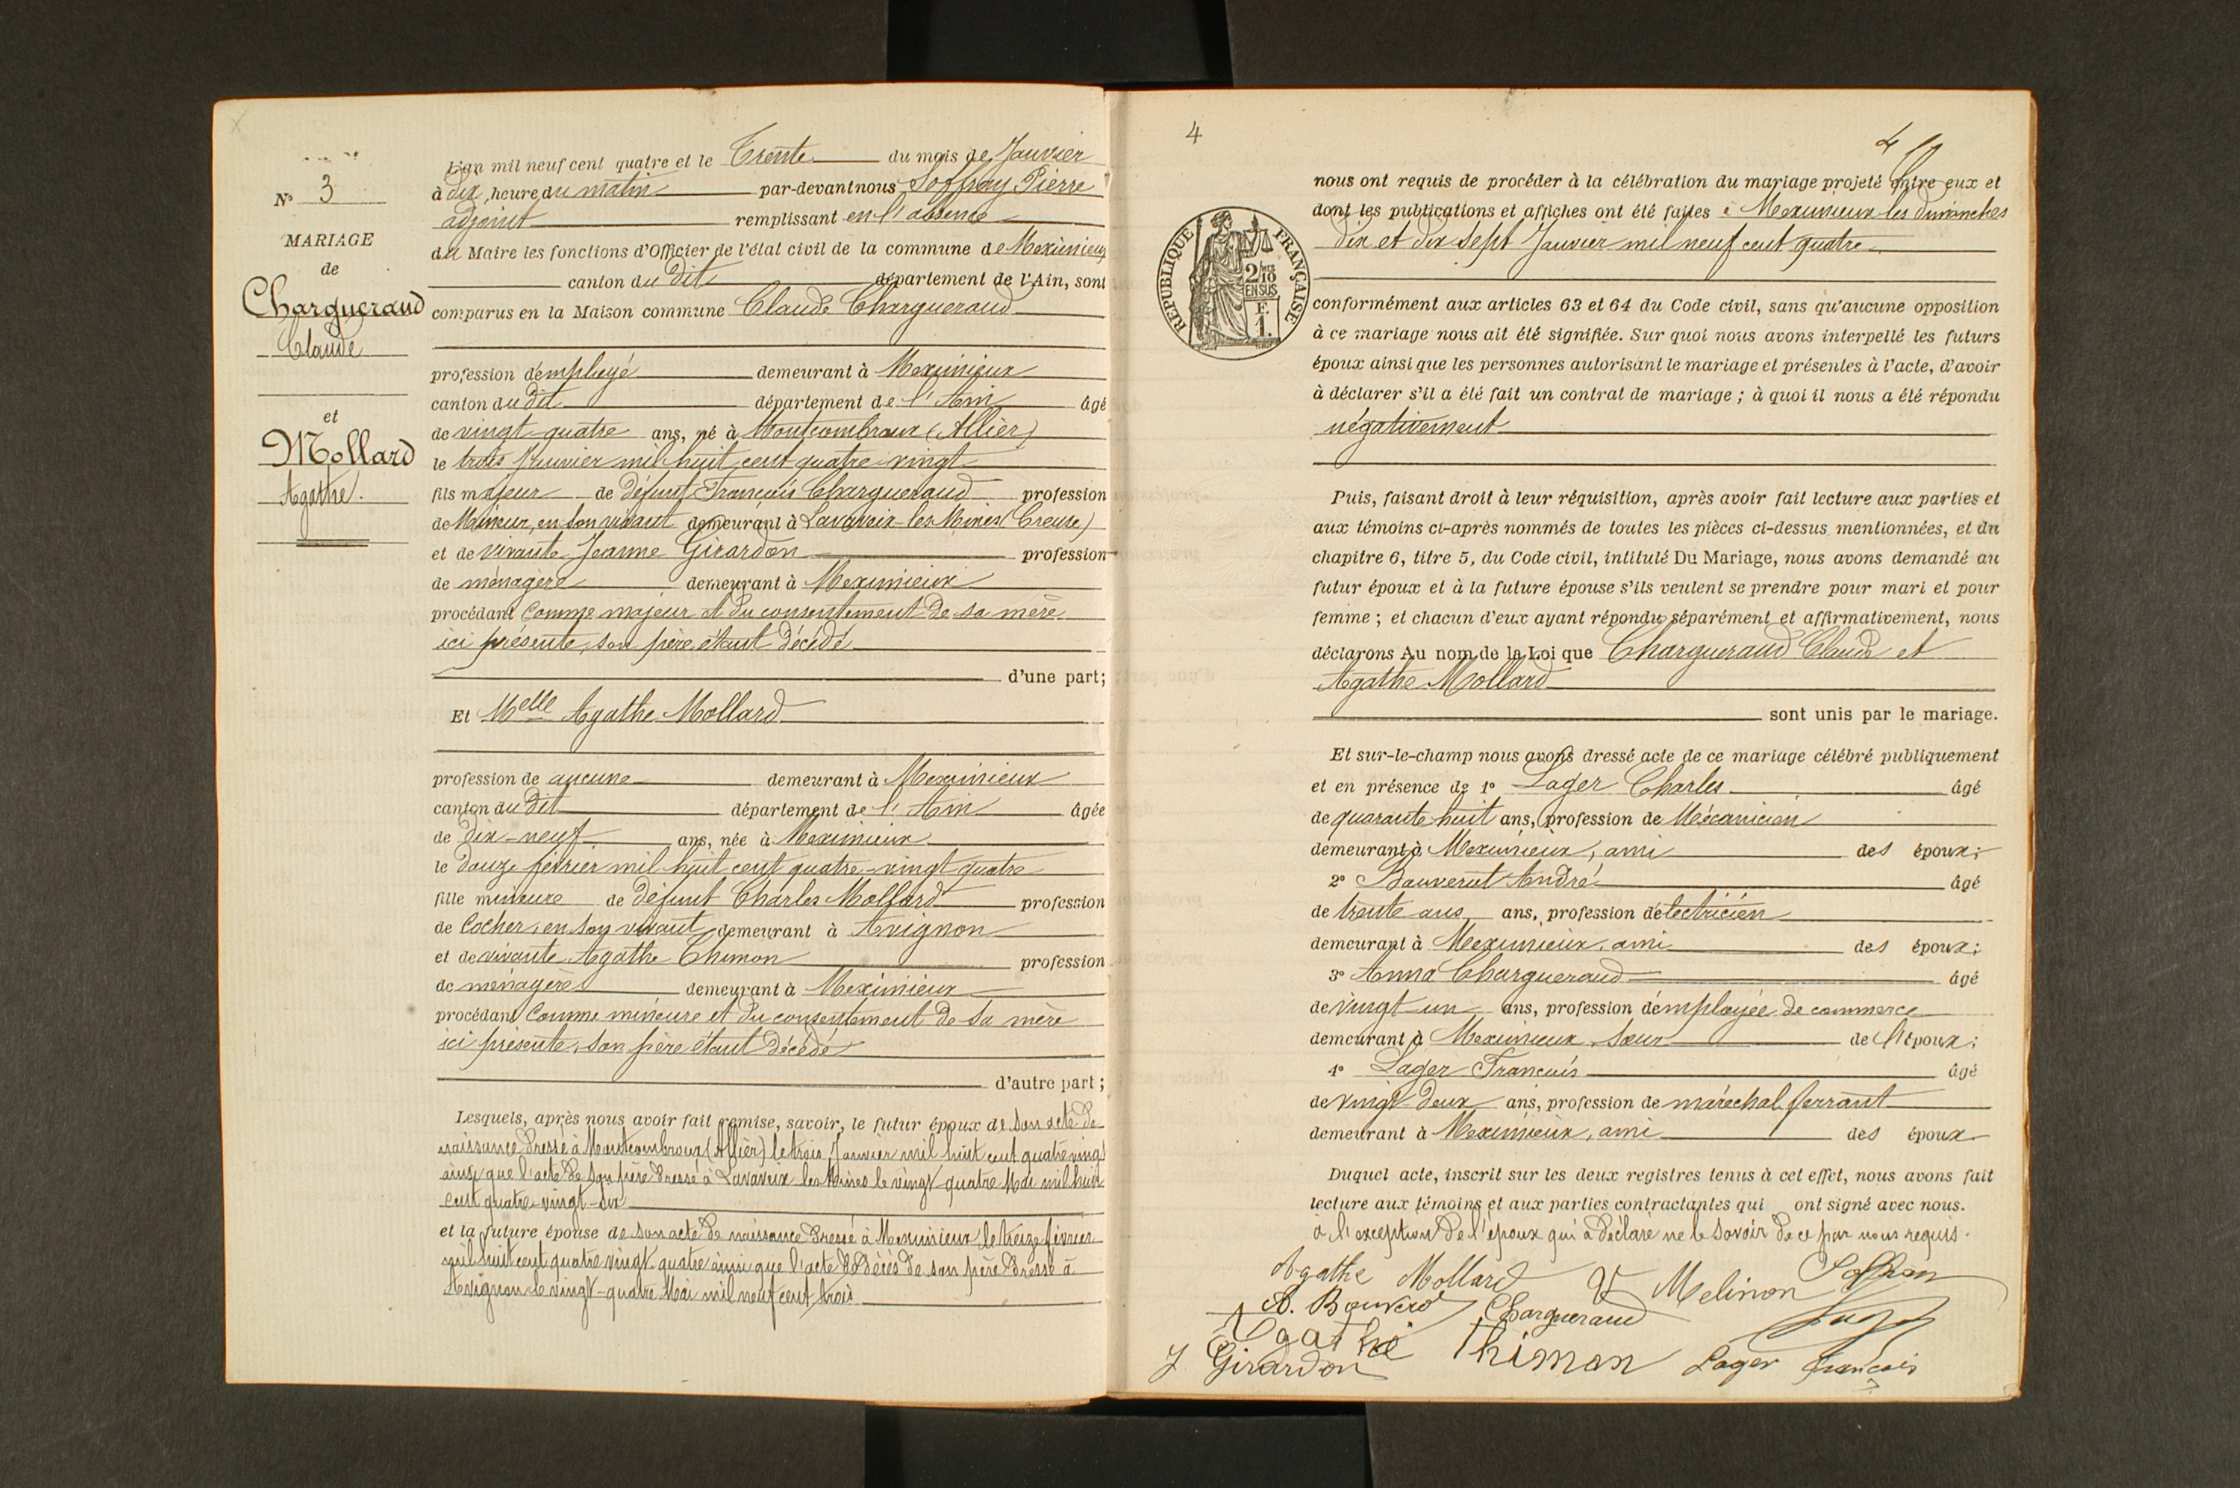 N° 3
MARIAGE
de
Chargueraud
Claude
et
Mollard
Agathe.
L'an mil neuf cent quatre et le Trente du mois de Janvier
à dix heure du matin par-devant nous Soffray Pierre
adjoint remplissant en l'absence
du Maire les fonctions d'Officier de l'état civil de la commune de Meximieux
canton du dit département de l'Ain, sont
comparus en la Maison commune Claude Chargueraud
profession d'employé demeurant à Meximieux
canton du dit département de l'Ain âgé
de vingt-quatre ans, né à Montcombroux (Allier)
le trois Janvier mil huit cent quatre-vingt
fils majeur de défunt François Chargueraud profession
de Mineur, en son vivant demeurant à Lavaveix-les-Mines (Creuse)
et de vivante Jeanne Girardon profession
de ménagère demeurant à Meximieux
procédant comme majeur et du consentement de sa mère
ici présente, son père étant décédé
d'une part;
Et Melle Agathe Mollard
profession de aucune demeurant à Meximieux
canton du dit département de l'Ain âgée
de dix-neuf ans, née à Meximieux
le douze février mil huit cent quatre-vingt quatre
fille mineure de défunt Charles Mollard profession
de Cocher, en son vivant demeurant à Avignon
et de vivante Agathe Thimon profession
de ménagère demeurant à Meximieux
procédant comme mineure et du consentement de sa mère
ici présente, son père étant décédé
d'autre part;
Lesquels, après nous avoir fait remise, savoir, le futur époux de son acte de
naissance dressé à Montcombroux (Allier) le trois Janvier mil huit cent quatre vingt
ainsi que l'acte de son père dressé à Lavaveix les Mines le vingt-quatre Mai mil huit
cent quatre-vingt-dix
et la future épouse de son acte de naissance dressé à Meximieux le treize février
mil huit cent quatre vingt-quatre ainsi que l'acte de décès de son père dressé à
Avignon le vingt-quatre Mai mil neuf cent trois
4
RÉPUBLIQUE FRANÇAISE
2/10
EN SUS
F.
1.
nous ont requis de procéder à la célébration du mariage projeté entre eux et
dont les publications et affiches ont été faites à Meximieux les dimanches
dix et dix sept Janvier mil neuf cent quatre
conformément aux articles 63 et 64 du Code civil, sans qu'aucune opposition
à ce mariage nous ait été signifiée. Sur quoi nous avons interpellé les futurs
époux ainsi que les personnes autorisant le mariage et présentes à l'acte, d'avoir
à déclarer s'il a été fait un contrat de mariage; à quoi il nous a été répondu
négativement
Puis, faisant droit à leur réquisition, après avoir fait lecture aux parties et
aux témoins ci-après nommés de toutes les pièces ci-dessus mentionnées, et du
chapitre 6, titre 5, du Code civil, intitulé Du Mariage, nous avons demandé au
futur époux et à la future épouse s'ils veulent se prendre pour mari et pour
femme; et chacun d'eux ayant répondu séparément et affirmativement, nous
déclarons Au nom de la Loi que Chargueraud Claude et
Agathe Mollard
sont unis par le mariage.
Et sur-le-champ nous avons dressé acte de ce mariage célébré publiquement
et en présence de 1° Lager Charles âgé
de quarante huit ans, profession de Mécanicien
demeurant à Meximieux, ami des époux;
2° Bouverot André âgé
de trente ans ans, profession d'électricien
demeurant à Meximieux, ami des époux;
3° Anna Chargueraud âgé
de vingt-un ans, profession d'employée de commerce
demeurant à Meximieux, sœur de l'époux;
4° Lager François âgé
de vingt-deux ans, profession de maréchal ferrant
demeurant à Meximieux, ami des époux
Duquel acte, inscrit sur les deux registres tenus à cet effet, nous avons fait
lecture aux témoins et aux parties contractantes qui ont signé avec nous.
à l'exception de l'époux qui a déclaré ne le savoir de ce par nous requis.
Agathe Mollard V Melinon Soffray
A. Bouverot Chargueraud Lager
Agathe Thimon Lager François
J Girardon